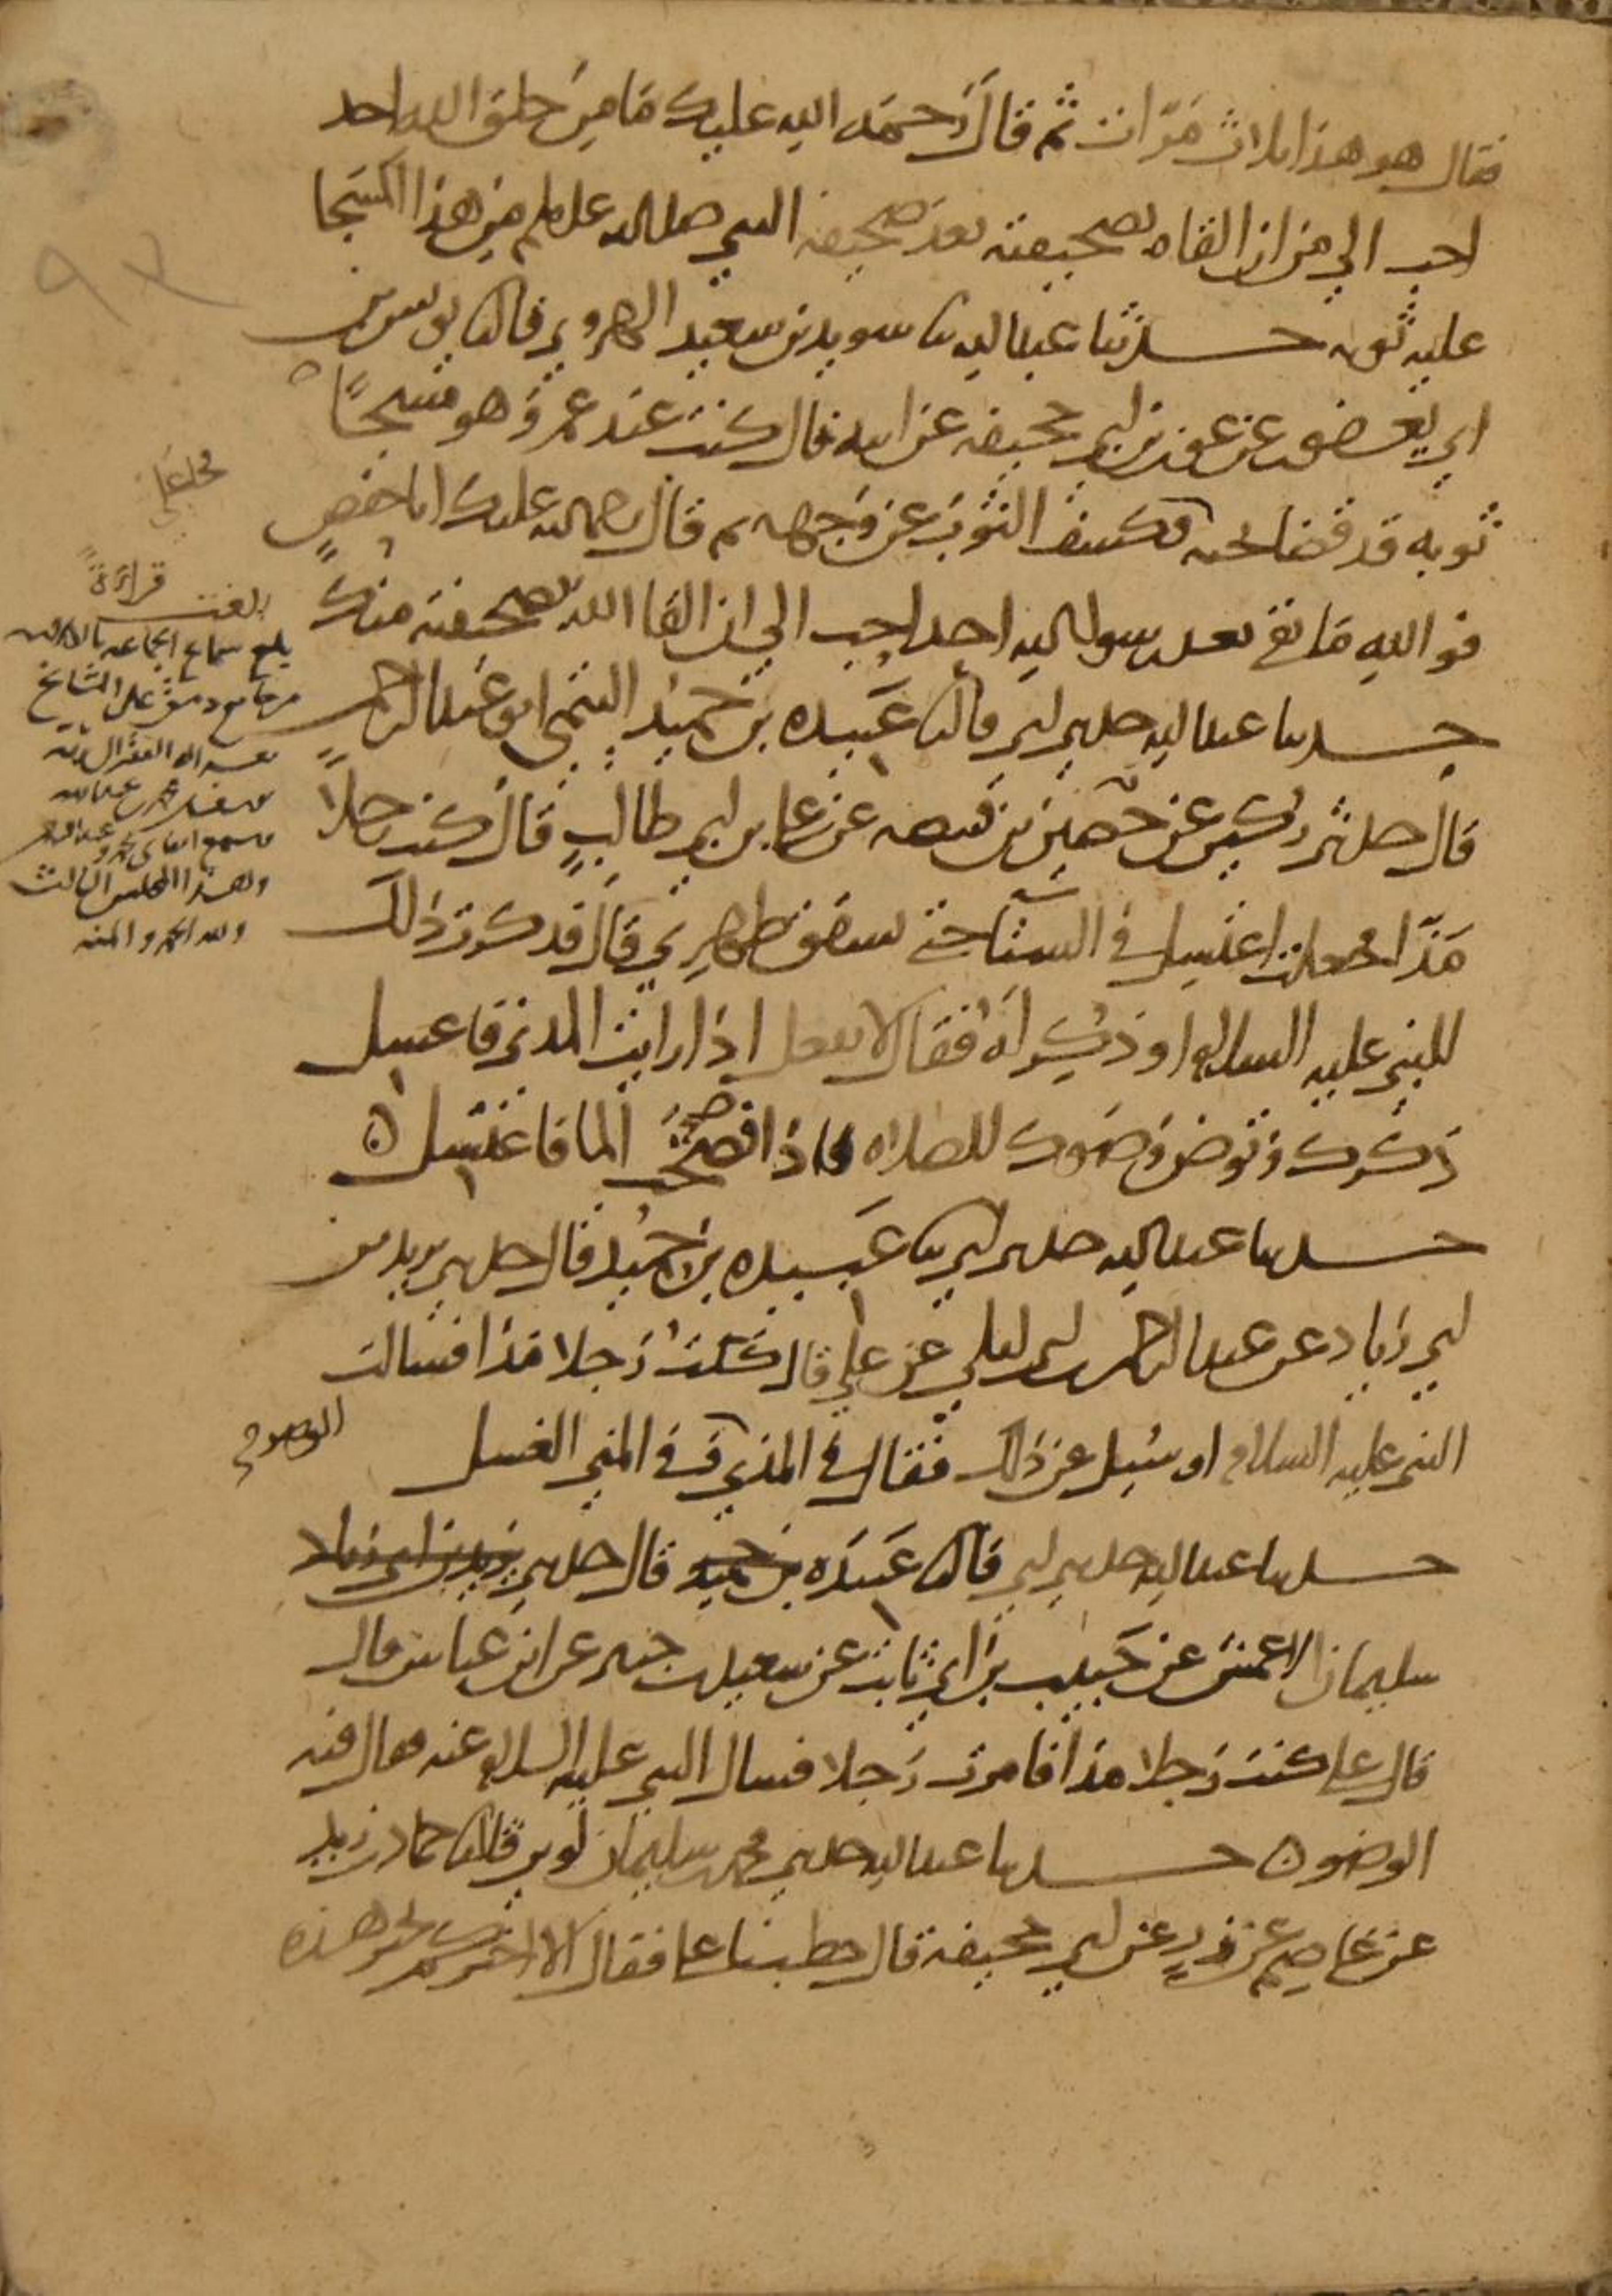 فقال هو هذا ثلاث مرات ثم قال رحمه الله عليك ما من خلق الله احد
احب الي من ان القاه بصحيفته بعد صحيفه النبي صلى الله عليه وسلم من هذا المسجا
عليه ثوبه حدثنا عبد الله ثنا سويد بن سعيد الهروي قال ثنا يونس بن
ابي يعفور عن عون بن ابي جحيفه عن ابيه قال كنت عند عمر وهو مسجا
ثوبه قد قضا نحبه فكشف الثوب عن وجهه ثم قال رحمه الله عليك ابا حفص
فوالله ما بقي بعد رسول الله احد احب الي ان القا الله بصحيفته منك
حدثنا عبد الله حدثني ابي قال ثنا عبيده بن حميد التيمي ابو عبد الرحمن
قال حدثني ركين عن حصين بن قبيصه عن علي بن ابي طالب قال كنت رجلا
مذا فجعلت اغتسل في الشتا حتى تشقق ظهري قال فذكرت ذلك
للنبي عليه السلام او ذكر له فقال لا تفعل اذا رايت المذي فاغسل
ذكرك وتوض وضوك للصلاه فاذا فضخت الما فاغتسل
حدثنا عبد الله حدثني ابي ثنا عبيده بن حميد قال حدثني يزيد بن
ابي زياد عن عبد الرحمن بن ابي ليلى عن علي قال كنت رجلا مذا فسالت
النبي عليه السلام او سئل عن ذلك فقال في المذي وفي المني الغسل
الوضو
حدثنا عبد الله حدثني ابي قال ثنا عبيده بن حميد قال حدثني يزيد بن ابي زياد
سليمان الاعمش عن حبيب بن ابي ثابت عن سعيد بن جبير عن ابن عباس قال
قال علي كنت رجلا مذا فامرت رجلا فسال النبي عليه السلام عنه فقال فيه
الوضو حدثنا عبد الله حدثني محمد بن سليمان لوين قال ثنا حماد بن زيد
عن عاصم عن زر عن ابي جحيفه قال خطبنا علي فقال الا اخبركم بخير هذه
بلغت قراءة
بلغ سماع الجماعه
بجامع دمشق على المشايخ
ولله الحمد والمنه